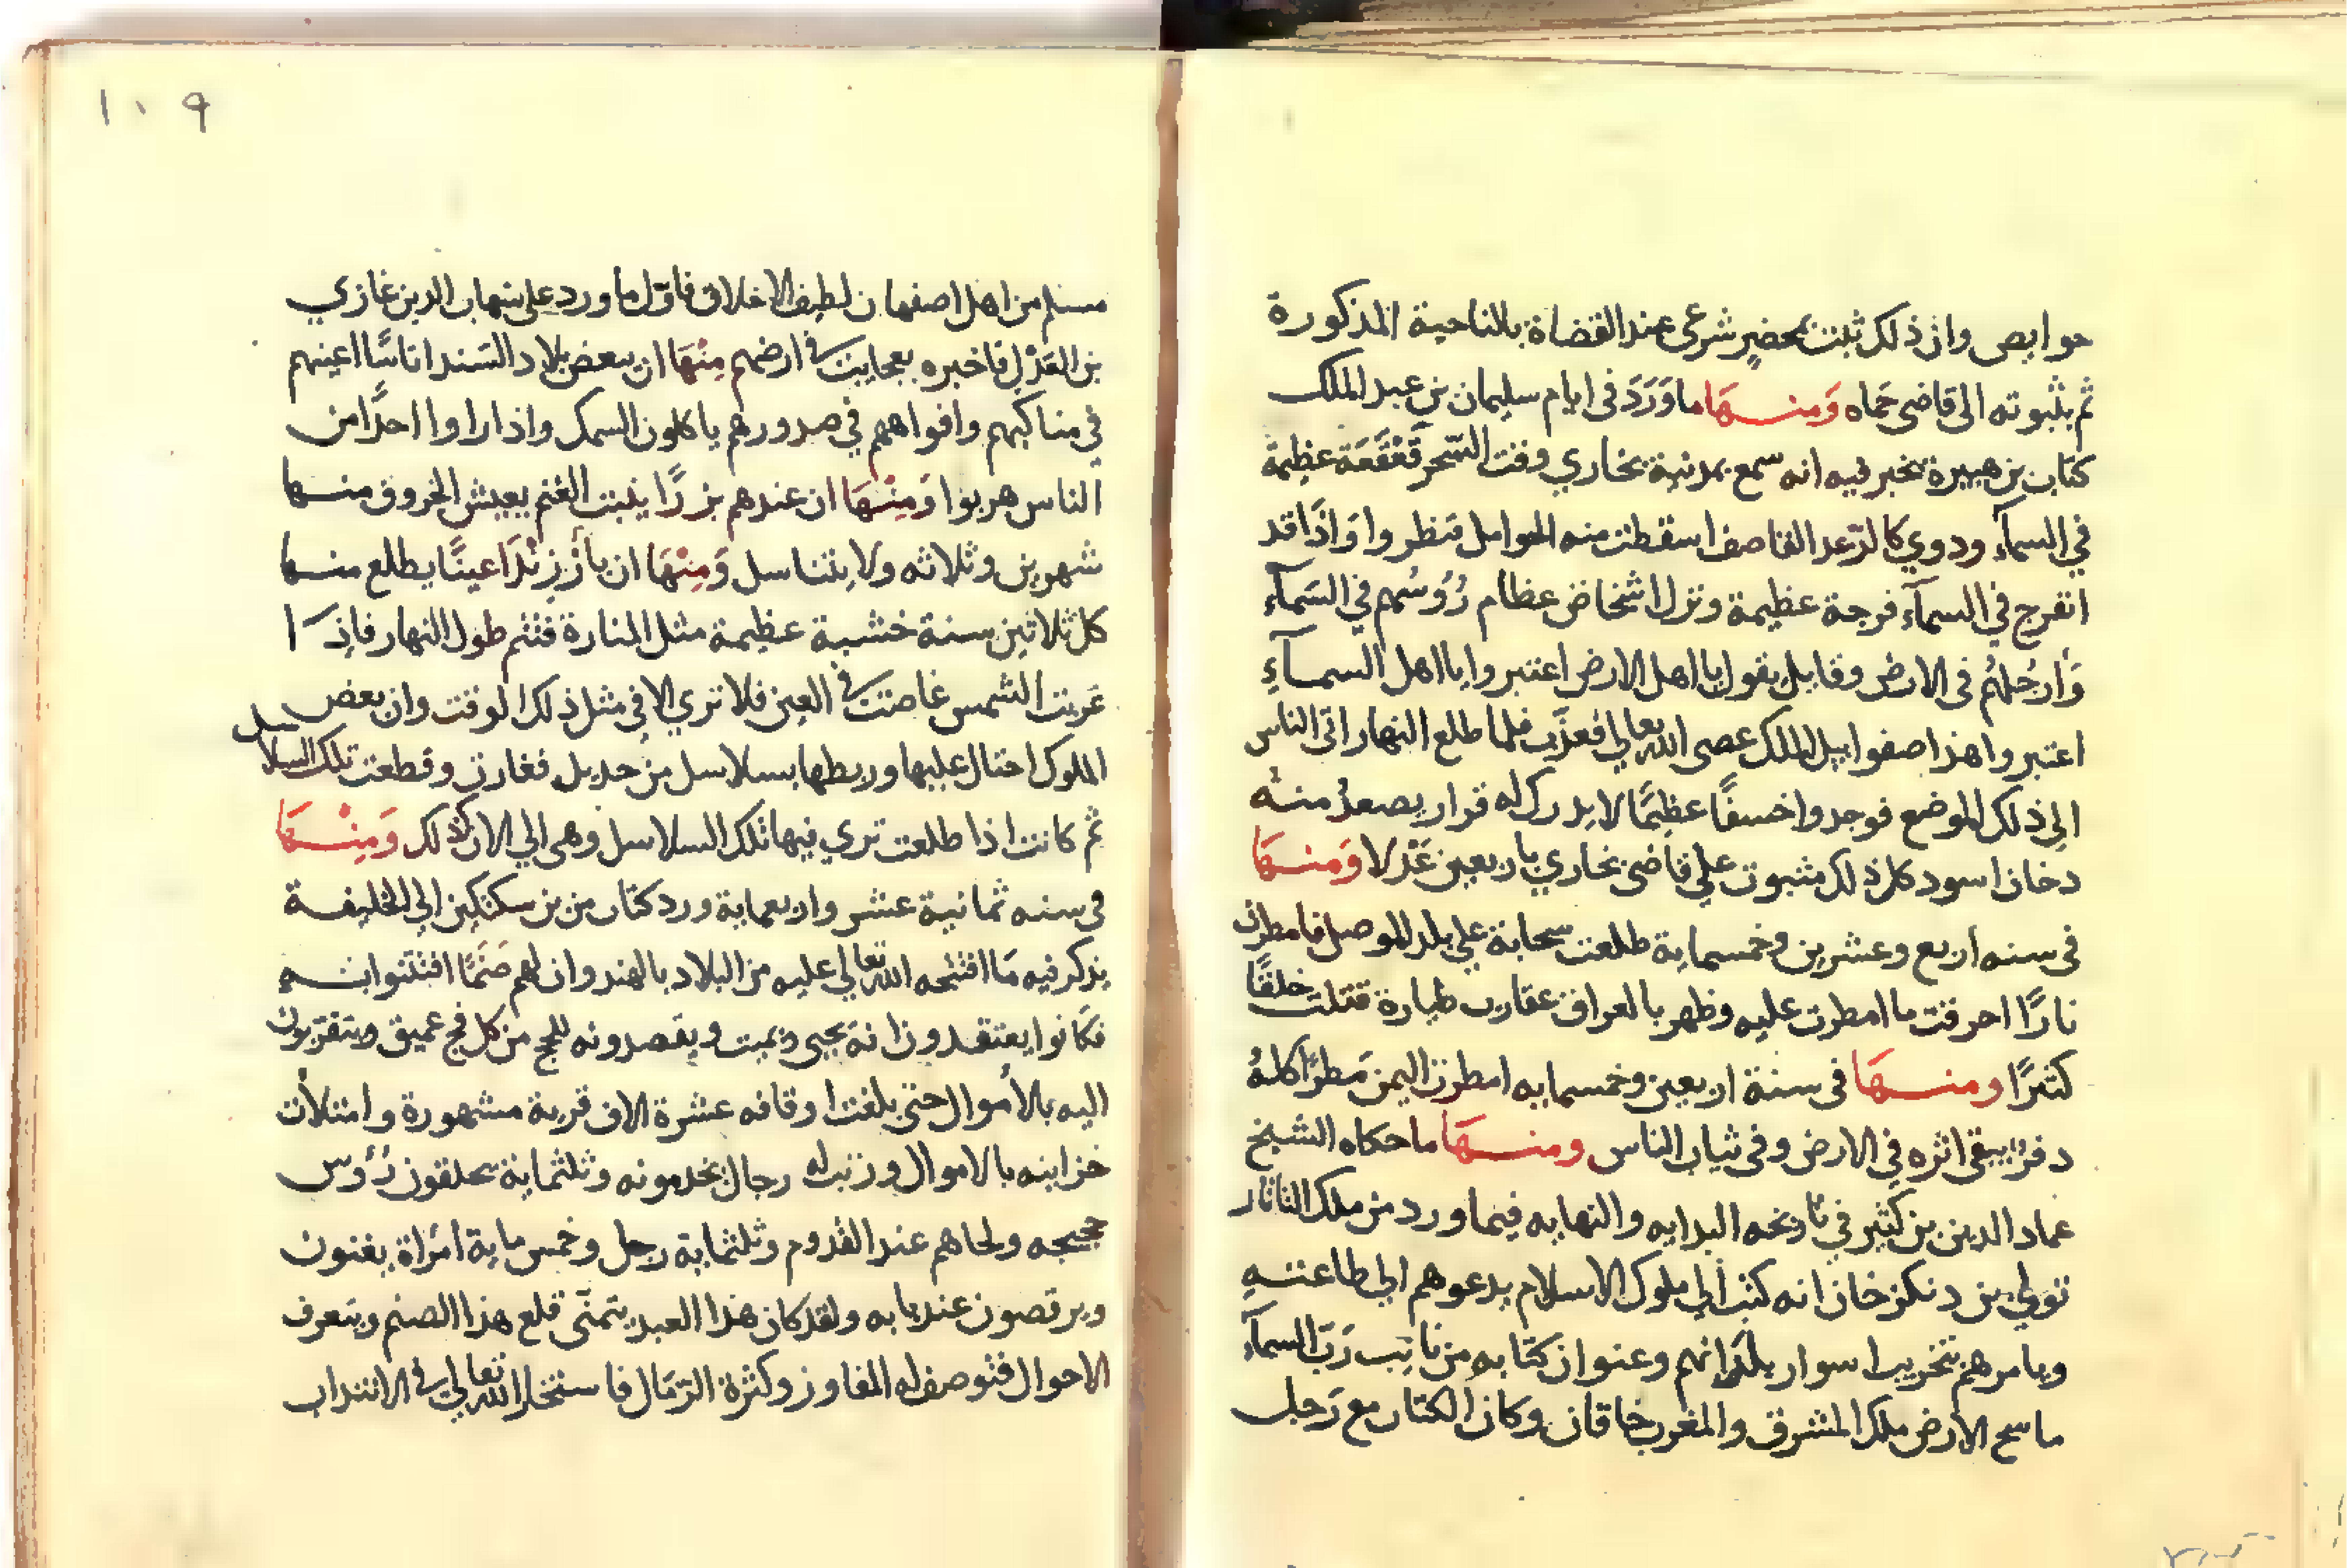 حوابص وان ذلك ثبت بمحضرٍ شرعى عند القضاة بالناحية المذكورة
ثم بثبوته الى قاضى حَماه وَمنــهَا ما وَرَدَ فى ايام سليمان بن عبد الملك
كتاب بن هبيرة يخبر فيه انه سمع بمدنية بخاري وقت السّحر قَعْقَعَة عظيمة
في السمآء ودوي كالرّعد القاصف اسقطت منه الحوامل فنظروا وَاذَا قد
انفرج في السمآء فرجة عظيمة ونزل اشخاص عظام رُؤُسُهم في السَمآء
وَأرجُلهُم فى الارض وقايل يقول يا اهل الارض اعتبروا يا اهل السمــآءِ
اعتبروا هذا صفواييل الملك عصى الله تعالي فعذّب فلما طلع النهار اتى الناس
الي ذلك الموضع فوجدوا خسفًا عظيمًا لا يدرك له قرار يصعدُ منــه
دخان اسود كل ذلك مثبوت علي قاضى بخاري باربعين عَدْلا وَمنــهَا
فى سنه أربع وعشرين وخمسماية طلعت سحابة علي بلد الموصل فامطرت
نارًا احرقت ما امطرت عليه وظهر بالعراق عقارب طيارة قتلت خلقًا
كثيرًا ومنــهَا فى سنة اربعين وخمسمايه امطرت اليمن مَطرًا كلهُ
دمٌ يبقى اثره في الارض وفى ثياب الناس ومنــهَا ما حكاه الشيخ
عماد الدين بن كثير في تاريخه البدايه والنهايه فيما ورد من ملك التاتار
تولي بن دنكزخان انه كتب الي ملوك الاسلام يدعوهم الي طاعتــهِ
ويامرهم بتخريب اسوار بلدانهم وعنوان كتابه من نائب رَبّ السمآءِ
ماسح الارض ملك المشرق والمغرب خاقان وكان الكتاب مع رَجل
١٠٩
مسلم من اهل اصفهان لطيف الاخلاق فاوّل ما ورد علي شهاب الدين غازي
بن العَدْل فاخبره بعجايب في ارضهم مِنْهَا ان ببعض بلاد السّند اناسًا اعينهم
في مناكبهم وافواههم في صدورهم ياكلون السمك واذا راوا احدًا من
الناس هربوا وَمِنْــهَا ان عندهم بزرًا ينبت الغنم يعيش الخروف منــها
شهرين وثلاثه ولا يتناسل وَمِنْهَا ان بأَزِزنْدَا عينًا يطلع منــها
كل ثلاثين سنة خشبة عظيمة مثل المنارة فتقم طول النهار فاذ ا
غربت الشمس غاصت في العين فلا تري الا فى مثل ذلك الوقت وان بعض
الملوك احتال عليها وربطها بسلاسل من حديد فغارت وقطعت تلك السلاسل
ثم كانت اذا طلعت تري فيها تلك السلاسل وهى الي الان كذلك وَمِنْــهَا
فى سنه ثمانية عشر واربعماية ورد كتاب من بن سكتكين الي الخليفــة
يذكر فيه مَا افتتحه الله تعالي عليه من البلاد بالهند وان لهم صَنَمًا افتتنوا بــهِ
فكانوا يعتقدون انهَ يحيى ويميت ويقصدونه للحج من كل فج عميق ويتقربون
اليه بالأموال حتى بلغت اوقافه عشرة الاف قرية مشهورة وامتلأت
خزاينه بالاموال ورتب له رجال يخدمونه وثلثماية يحلقون رُؤوس
حجيجه ولحاهم عند القدوم وثلثماية رجل وخمس ماية أمرأة يغنون
ويرقصون عند بابه ولقد كان هذا العبد يتمنّى قلع هذا الصنم ويتعرف
الاحوال فتوصف له المفاوز وكثرة الرّمَال فاستخار الله تعالي في الانتداب